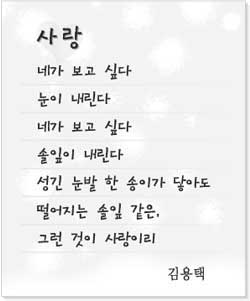 사랑
네가 보고 싶다
눈이 내린다
네가 보고 싶다
솔잎이 내린다
성긴 눈발 한 송이가 닿아도
떨어지는 솔잎 같은,
그런 것이 사랑이리
김용택